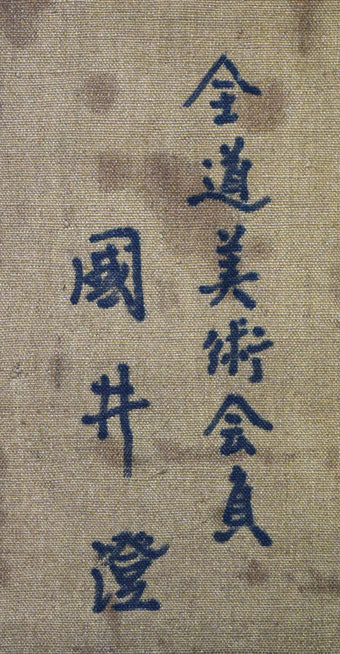 全道美術会員
國井澄